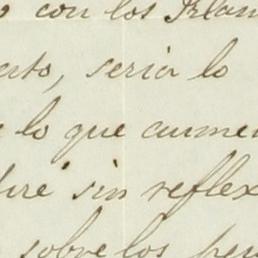 con los Irlan
esto, seria lo
lo que aumen
diré sin reflex
sobre los pen